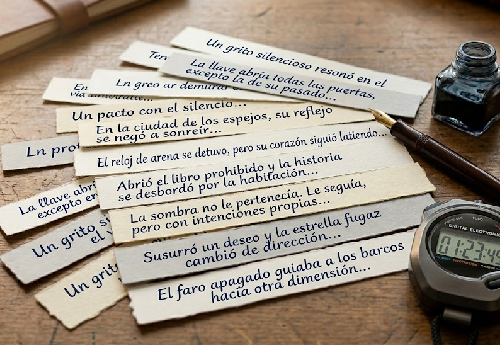 Un grito silencioso resonó en el
La llave abriu todas las puertas,
excepto la de su pasado...
Un pacto con el silencio...
En la ciudad de los espejos, su reflejo
se negó a sonreír...
El reloj de arena se detuvo, pero su corazón siguió latiendo...
Abrió el libro prohibido y la historia
se desbordó por la habitación...
La sombra no le pertenecía. Le seguía,
pero con intenciones propias...
Susurró un deseo y la estrella fugaz
cambió de dirección...
El faro apagado guiaba a los barcos
hacia otra dimensión...
Ln prot
La llave abri
excepto en
Un grito s
el
Un grit